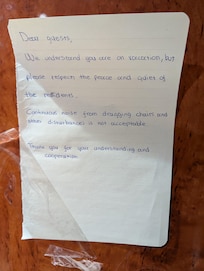 Dear guests,
We understand you are on vacation, but
please respect the peace and quiet of
the residents.
Continuous noise from dragging chairs and
other disturbances is not acceptable.
Thank you for your understanding and
cooperation